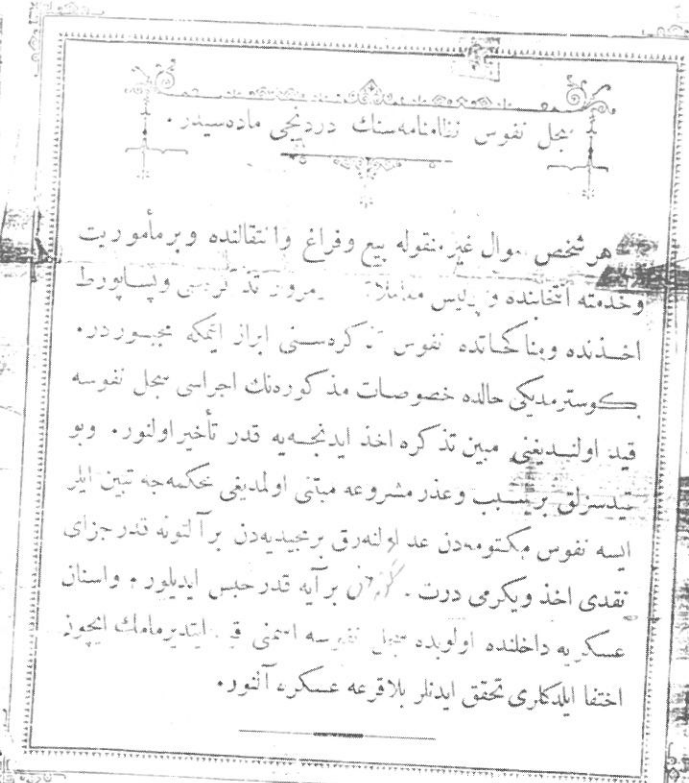 سجل نفوس نظامنامه‌سنك دردنجی ماده‌سیدر.
هر شخص اموال غیر منقوله بیع وفراغ وانتقالنده وبر مأموریت
وخدمته انتخابنده و پولیس مرور تذكره‌سی وپساپورط
اخذنده ومناكحاتده نفوس تذكره‌سنی ابراز ایتمكه مجبوردر.
كوسترمدیكی حالده خصوصات مذكوره‌نك اجراسی سجل نفوسه
قید اولندیغنی مبین تذكره اخذ ایدنجه‌یه قدر تأخیر اولنور. وبو
قیدسزلق بر سبب وعذر مشروعه مبتنی اولمدیغی محكمه‌جه تبین ایلر
ایسه نفوس مكتومه‌دن عد اولنه‌رق بر مجیدیه‌دن بر آلتونه قدر جزای
نقدی اخذ ویكرمی درت بر آیه قدر حبس ایدیلور. واسنان
عسكریه داخلنده اولوبده سجل نفوسه اسمنی قید ایتدیرمامك ایچون
اختفا ایلدكلری تحقق ایدنلر بلاقرعه عسكره آلنور.